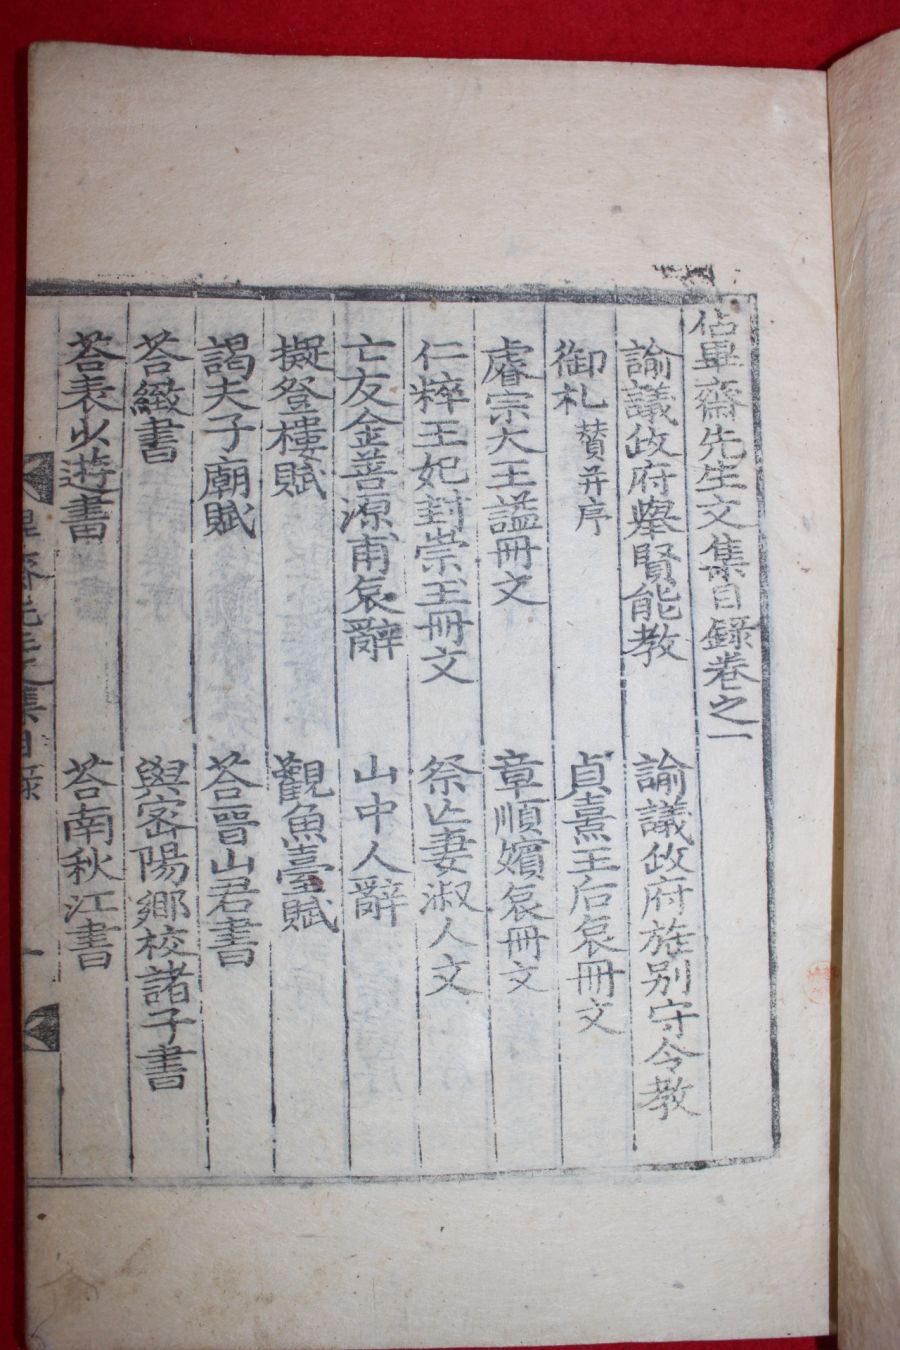 佔畢齋先生文集目錄卷之一
諭議政府擧賢能教
諭議政府旌別守令教
御札賛并序
貞熹王后哀冊文
睿宗大王謚冊文
章順嬪哀冊文
仁粹王妃封崇玉冊文
祭亡妻淑人文
亡友金善源甫哀辭
山中人辭
擬登樓賦
觀魚臺賦
謁夫子廟賦
荅晉山君書
荅緻書
與密陽鄉校諸子書
荅表少遊書
荅南秋江書
畢齋先生文集目錄
一